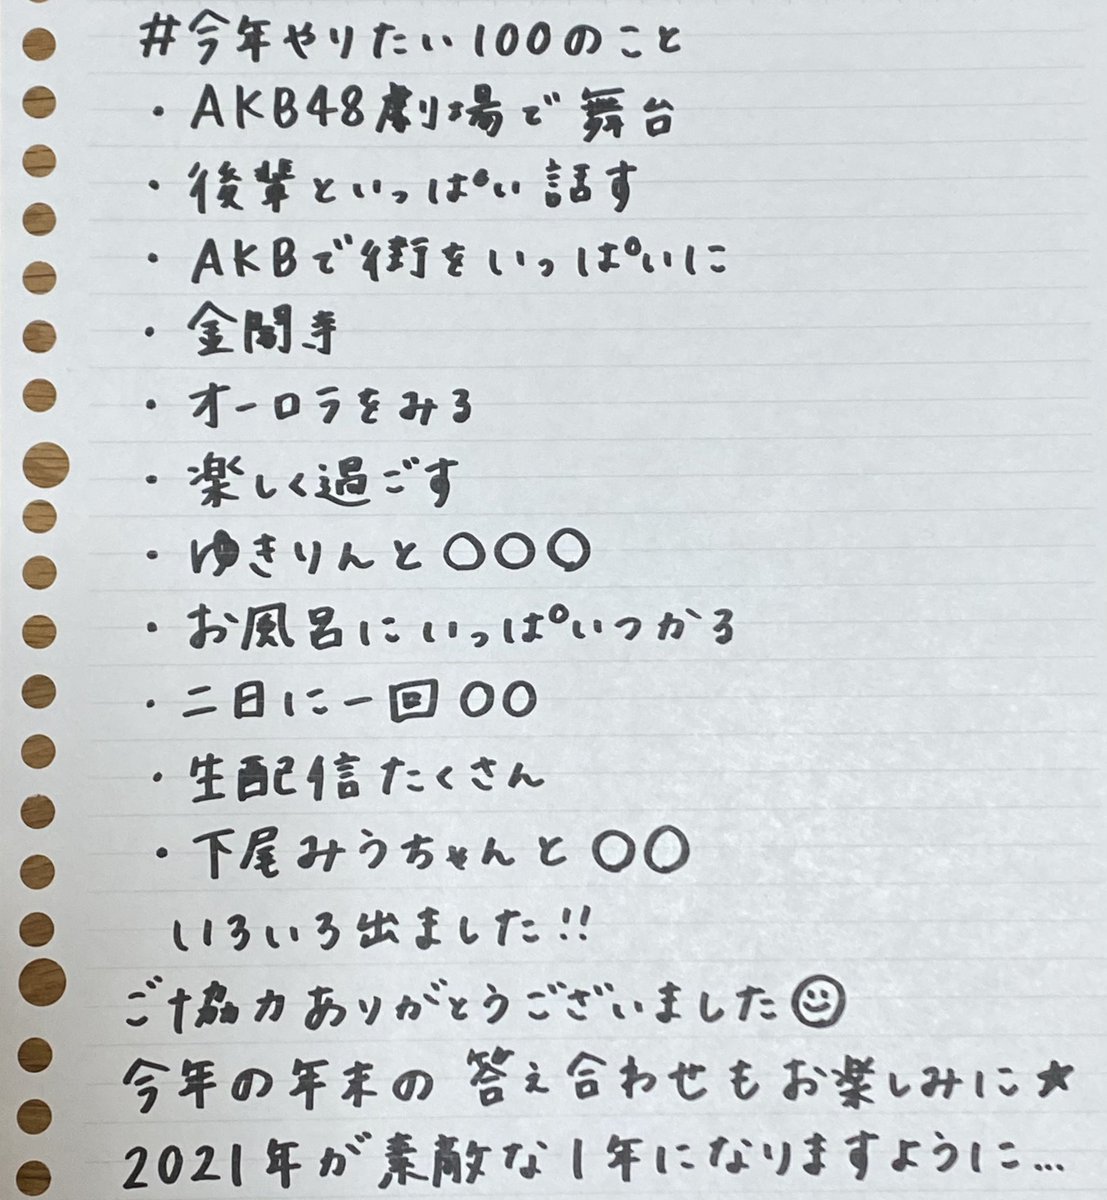 #今年やりたい100のこと
・AKB48劇場で舞台
・後輩といっぱい話す
・AKBで街をいっぱいに
・金閣寺
・オーロラをみる
・楽しく過ごす
・ゆきりんと〇〇〇
・お風呂にいっぱいつかる
・二日に一回〇〇
・生配信たくさん
・下尾みうちゃんと〇〇
いろいろ出ました!!
ご協力ありがとうございました☺
今年の年末の答え合わせもお楽しみに★
2021年が素敵な1年になりますように...